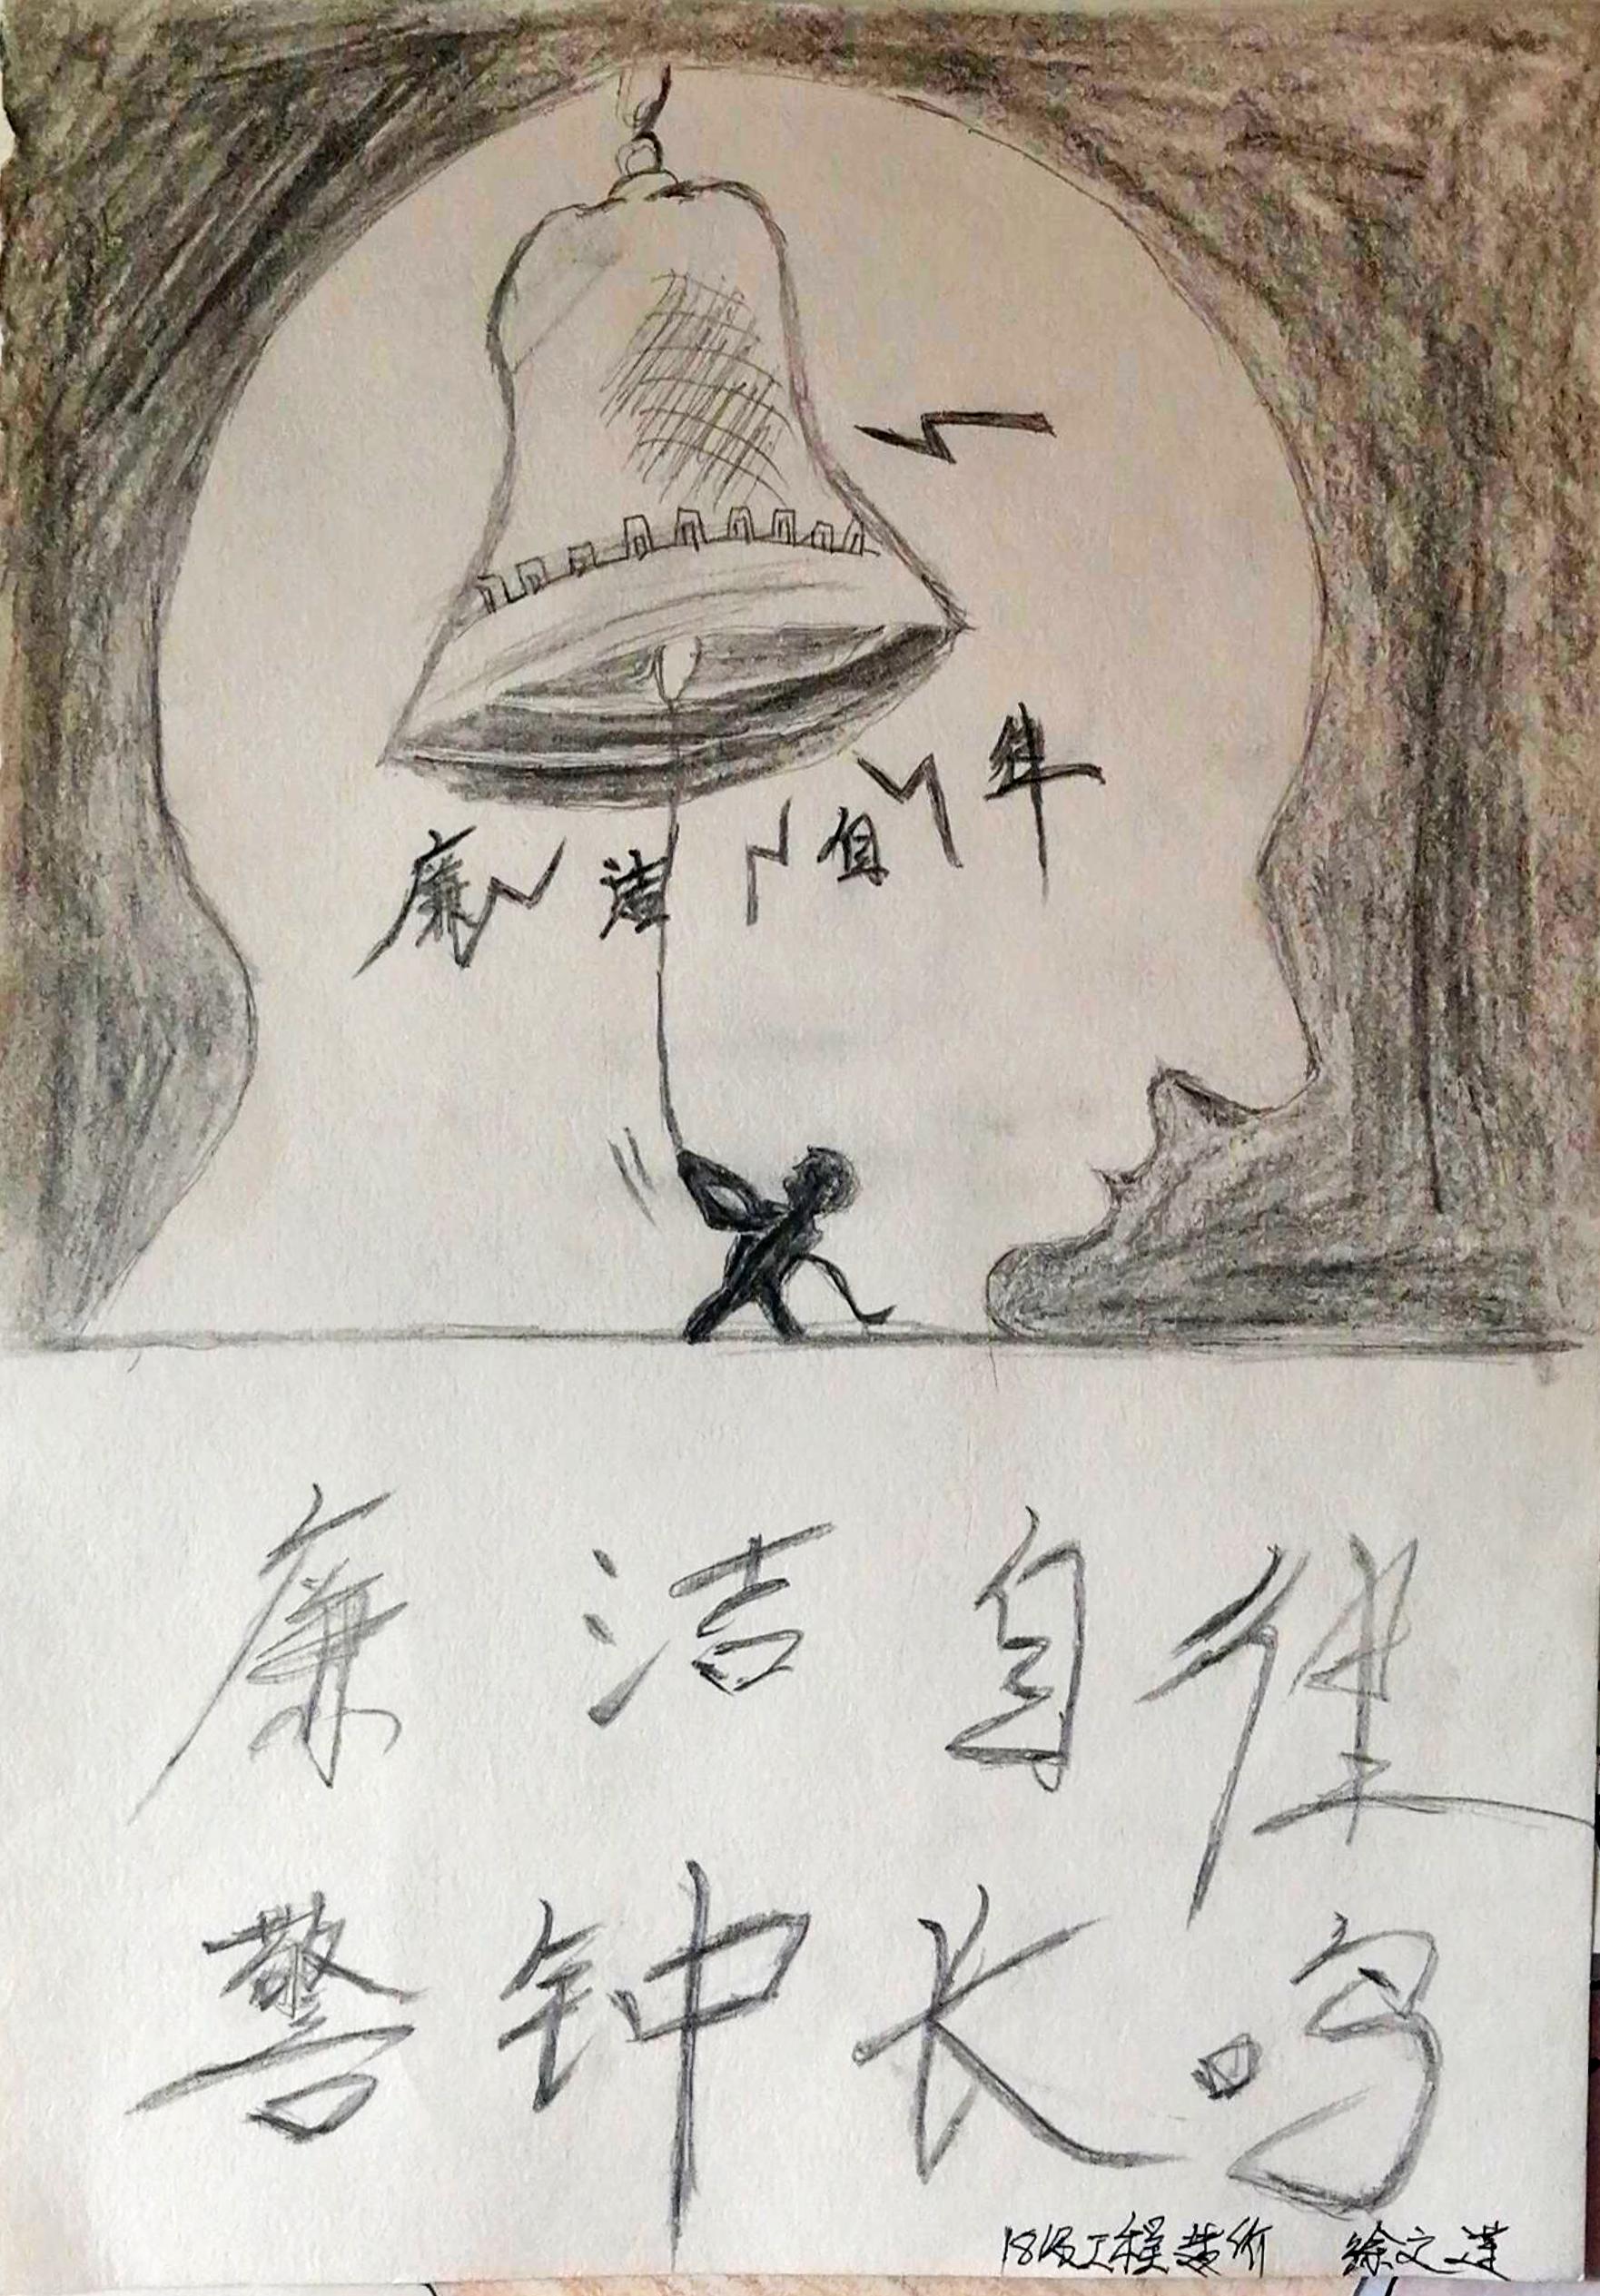 廉洁自律
廉洁自律
警钟长鸣
18级工程造价 徐文莲